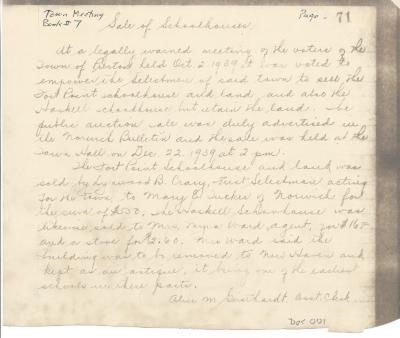 Town Meeting
Book # 7
Page - 71
Sale of Schoolhouses.
At a legally warned meeting of the voters of the
Town of Preston held Oct 2 1939 it was voted to
empower the Selectmen of said town to sell the
Fort Point schoolhouse and land, and also the
Haskell schoolhouse but retain the land. The
public auction sale was duly advertised in
the Norwich Bulletin and the sale was held at the
Town Hall on Dec. 22. 1939 at 2 pm.
The Fort Point Schoolhouse and land was
sold by Lynwood B. Crary, First Selectman acting
for the town, to Mary E. Tucker of Norwich for
the sum of $550. The Haskell Schoolhouse was
likewise sold to Mrs. Myra Ward, agent, for $16-
and a stove for $2.60. Mrs Ward said the
building was to be removed to New Haven and
kept as an antique, it being one of the earliest
schools in these parts.
Alice M. Asst. Clerk
Doc 001